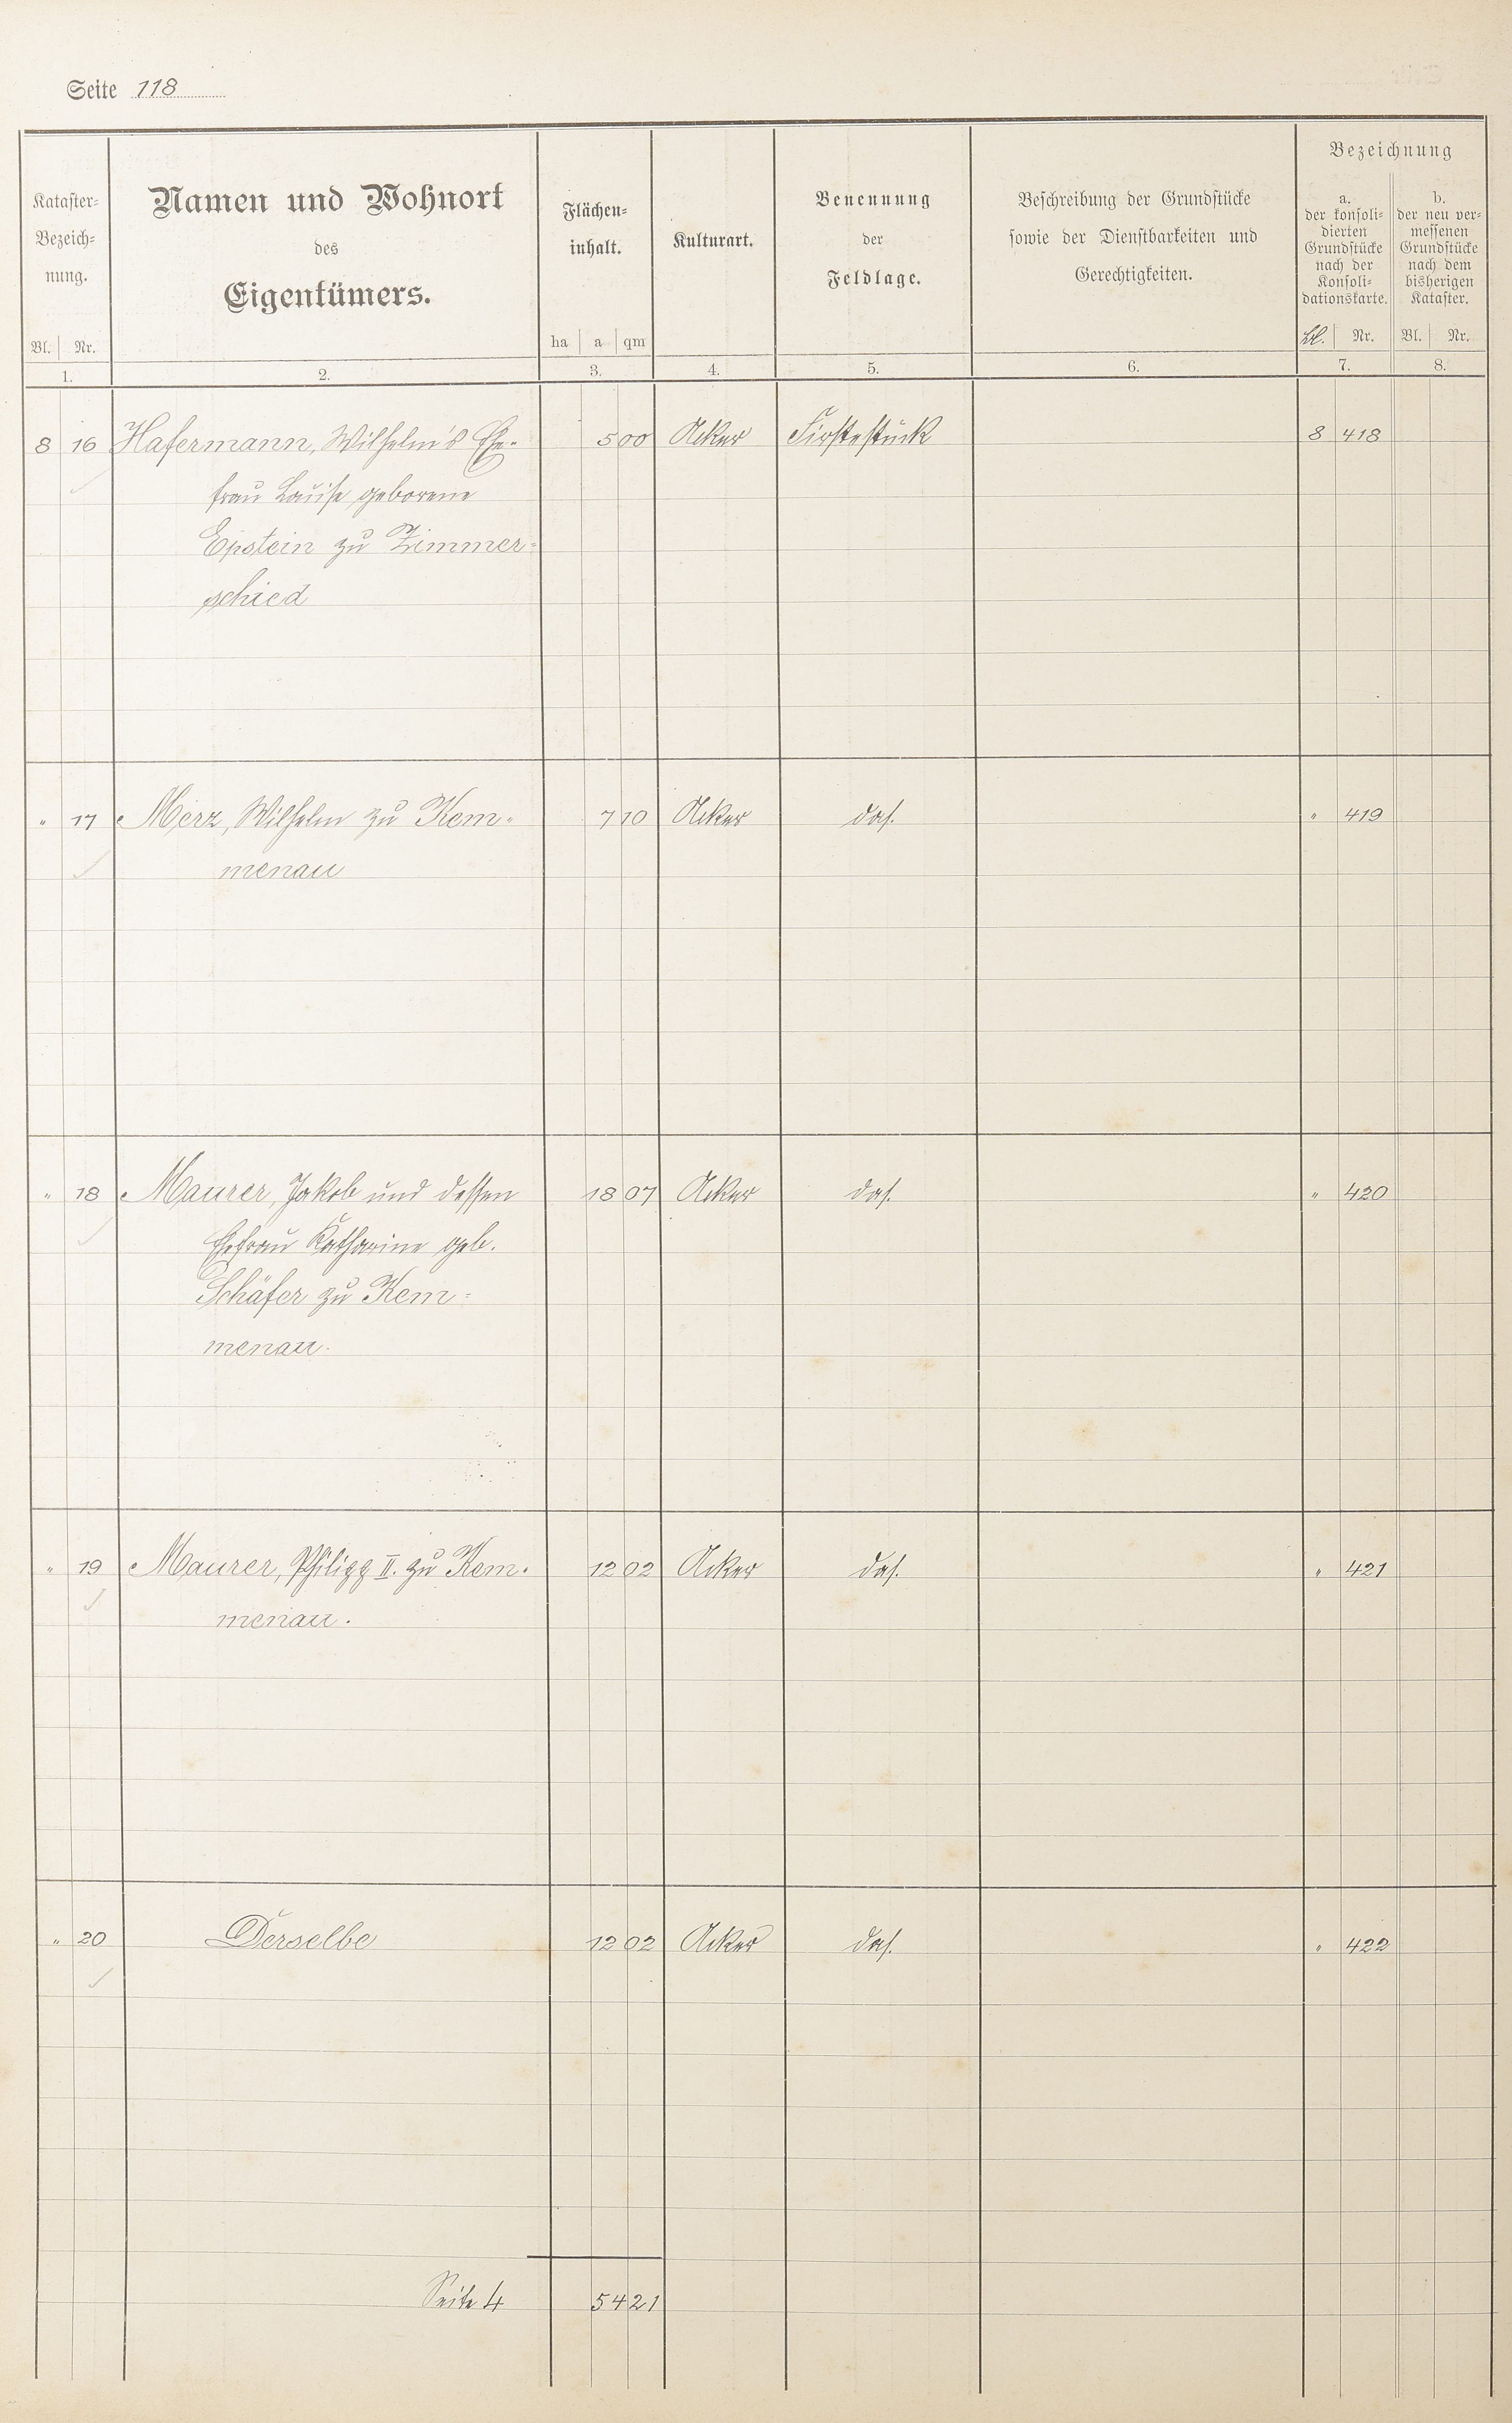 Seite 118
Kataster-
Bezeich-
nung.
Bl. Nr.
1.
Namen und Wohnort
des
Eigentümers.
2.
Flächen-
inhalt.
ha a qm
3.
Kulturart.
4.
Benennung
der
Feldlage.
5.
Beschreibung der Grundstücke
sowie der Dienstbarkeiten und
Gerechtigkeiten.
6.
Bezeichnung
a.
der konsoli-
dierten
Grundstücke
nach der
Konsoli-
dationskarte.
Bl. Nr.
7.
b.
der neu ver-
messenen
Grundstücke
nach dem
bisherigen
Kataster.
Bl. Nr.
8.
8 16 Hafermann, Wilhelm's Ehe- 5 00 Acker Firstestück 8 418
frau Louise geborene
Epstein zu Zimmer=
schied
" 17 Merz, Wilhelm zu Kem- 7 10 Acker das. " 419
menau
" 18 Maurer, Jakob und dessen 18 07 Acker das. " 420
Ehefrau Katharine geb.
Schäfer zu Kem=
menau.
" 19 Maurer, Philipp II. zu Kem- 12 02 Acker das. " 421
menau.
" 20 Derselbe 12 02 Acker das. " 422
Seite 4 54 21